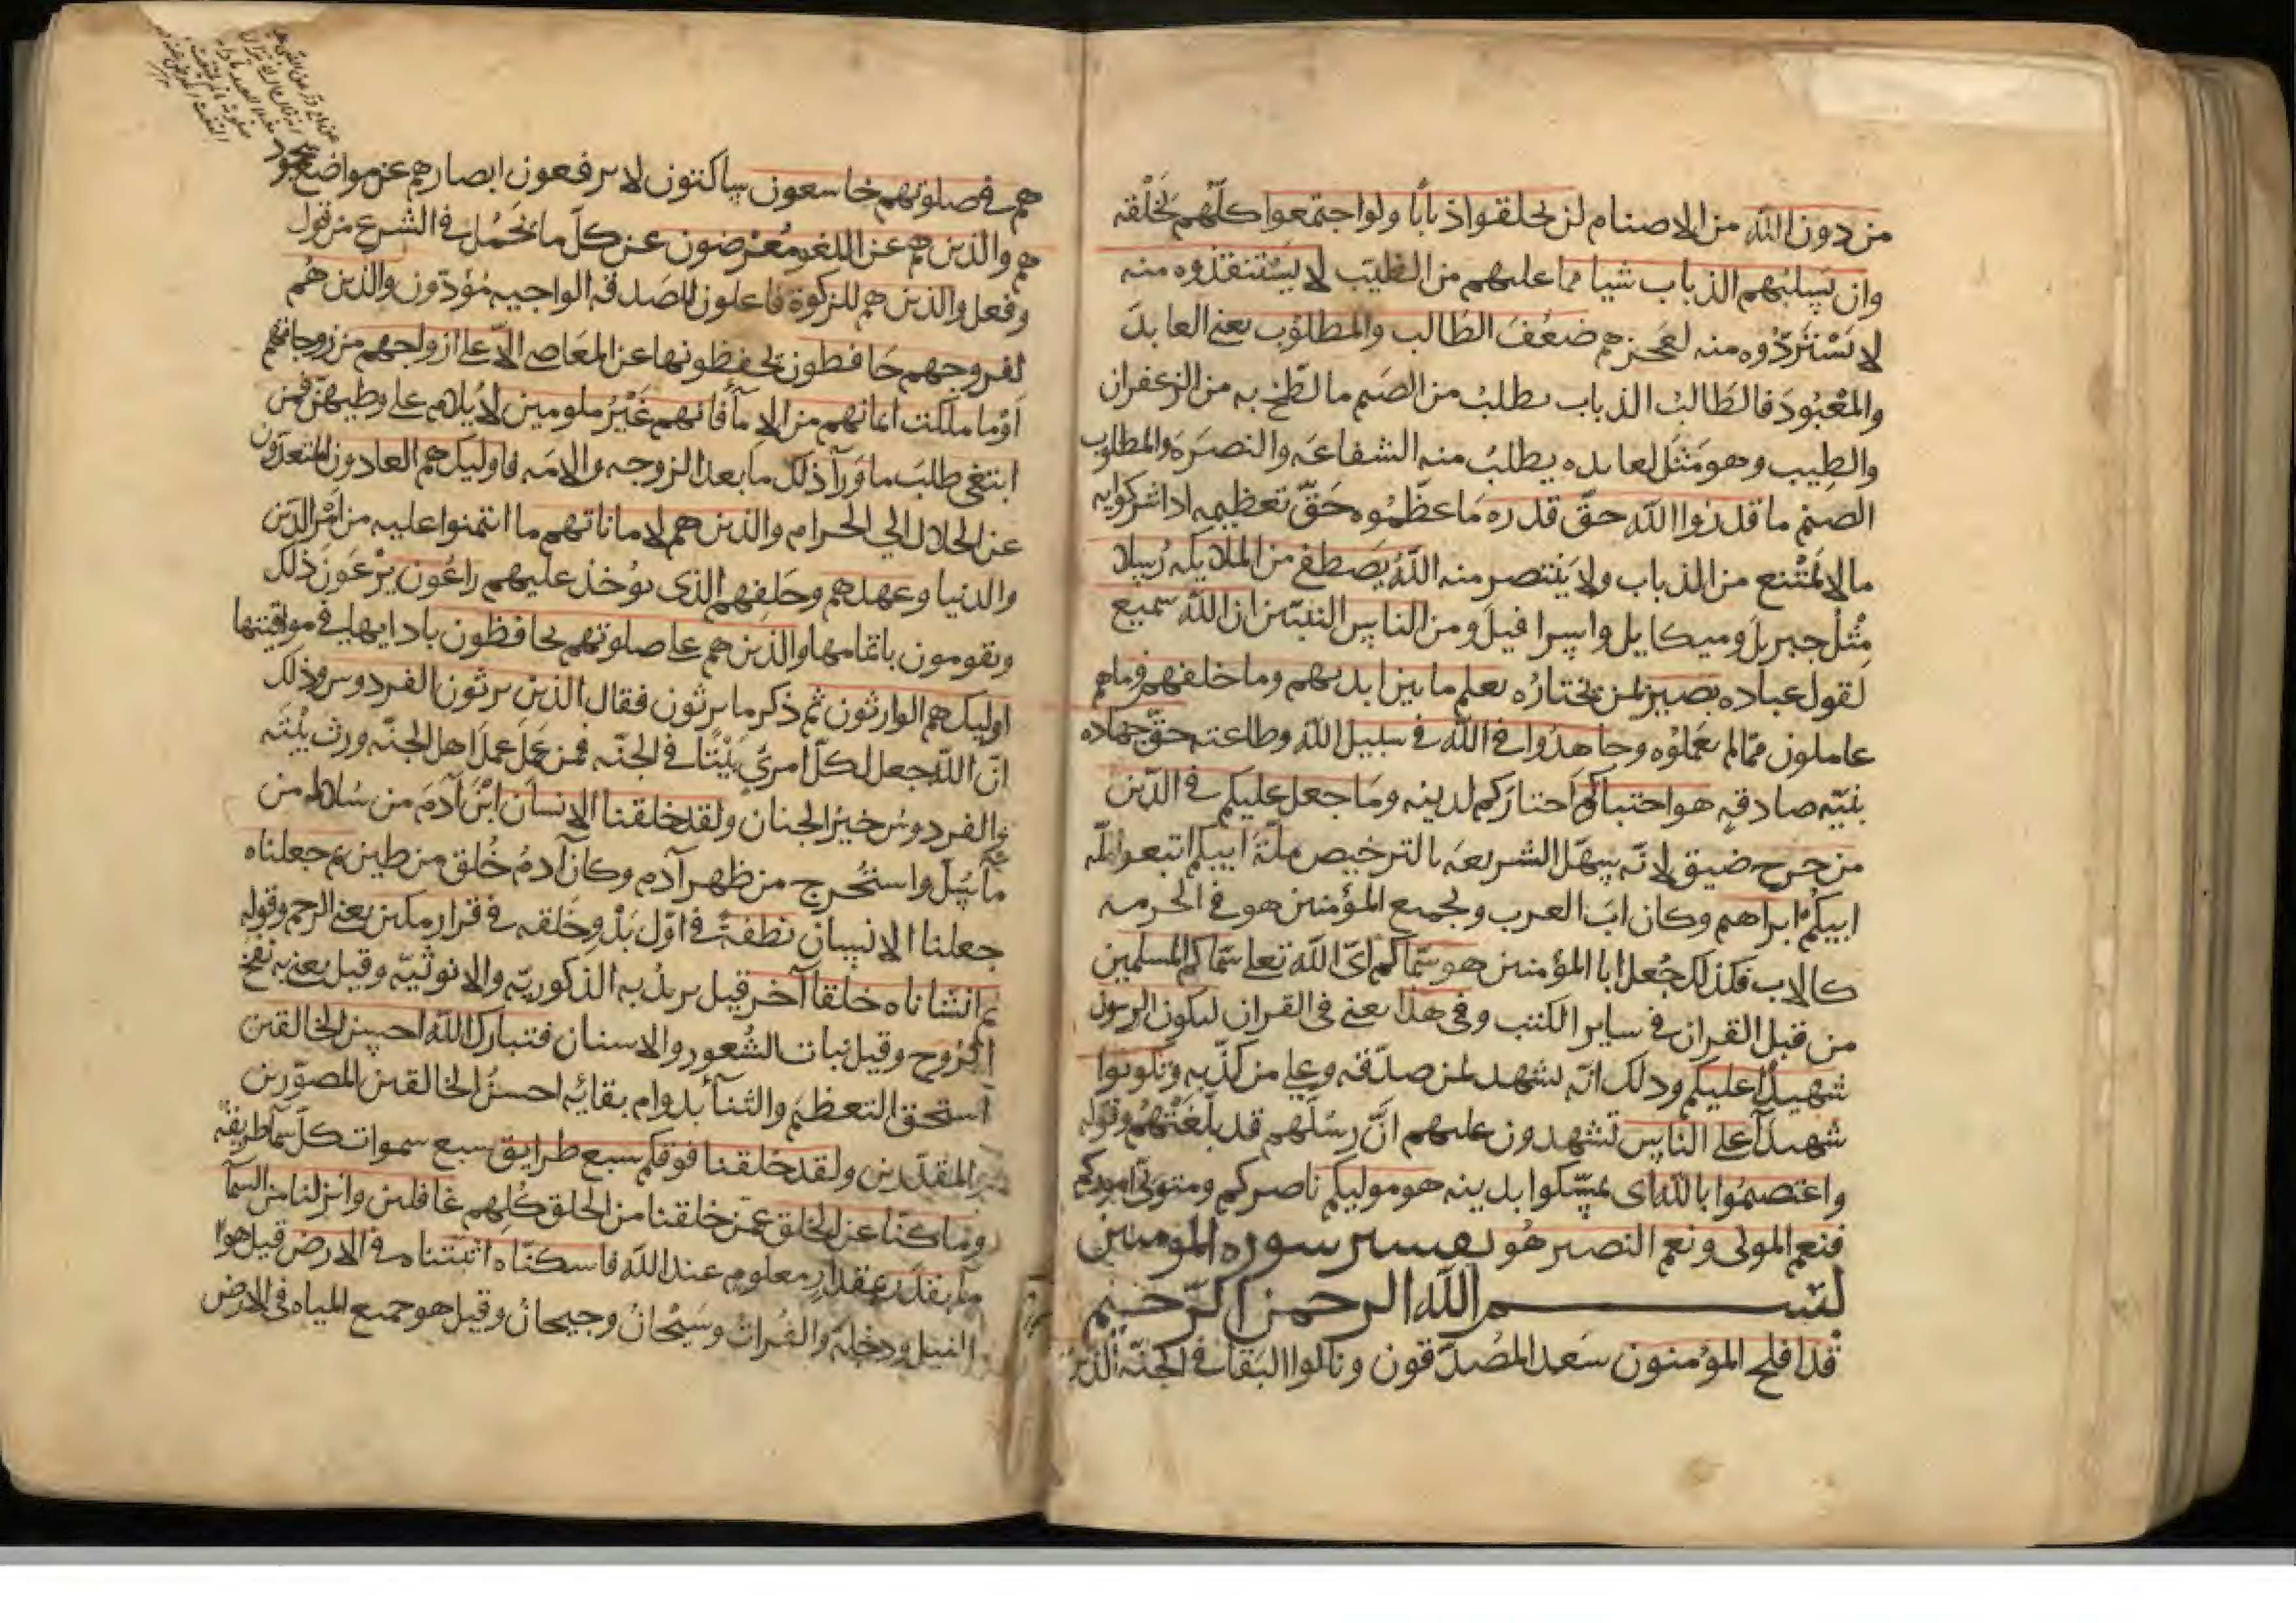 من دون الله من الاصنام لن يخلقوا ذبابًا ولو اجتمعوا كلّهم لخلقه
وان يسلبهم الذباب شيا مما عليهم من الطيب لا يستنقذوه منه
لا يَسْتَردّوه منه لعجزهم ضَعُفَ الطالب والمطلوب يعني العابدَ
والمعْبُودَ فالطالبُ الذباب يطلبُ من الصنم ما لطّخ به من الزعفران
والطيب وهو مَثَل لعابده يطلبُ منه الشفاعة والنصرَة والمطلوب
الصنم ما قدرُوا الله حقّ قدره مَا عظّمُوه حَقّ تعظيمه اذا شركوا به
ما لا يمْتنع من الذباب ولا يَنتصر منه اللّهُ يَصطفي من الملايكة رُسلا
مثْلُ جبريلَ وميكايل واسرافيلَ ومن الناس النبيّين ان الله سميع
لقول عباده بصير لمن يختارُه يعلم ما بين ايديهم وما خلفهم وما هم
عاملون ممّا لم يعملُوه وجاهدُوا في الله في سبيل الله وطاعته حقّ جهاده
بنيّه صادقه هو اجتباكم اختاركم لدينه ومَا جعل عليكم في الدّين
من حرج ضيق لانّه سهّل الشريعة بالترخيص ملّةَ ابيكم اتبعوا ملّه
ابيكم ابراهم وكان ابَ العرب ولجميع المؤمنين هو في الحرمه
كالاب فكذلك جُعل ابا المؤمنين هو سمّاكم اىّ الله تعلى سمّاكم المسلمين
من قبل القران في ساير الكتب وفي هذا يعنى في القران ليكون الرسول
شهيدًا عليكم وذلك انّه يشهد لمن صدّقه وعلى من كذّبه وتكونوا
شهدآ على الناس تشهدون عليهم انّ رسُلَهم قد بلّغَتْهُم وقوله
واعتصمُوا بالله اى تمسّكوا بدينه هو موليكم ناصركم ومتولّى اموركم
فنعم المولى ونعم النصير هُو تفسير سوره المومنين
بسم الله الرحمن الرّحيم
قد افلح المؤمنون سَعد المصُدّقون ونالوا البقا في الجنّه الذين
هم في صلوتهم خاشعون ساكتون لا يرفعون ابصارهم عن مواضع سجود
هم والذين هم عن اللغو مُعْرضون عن كلّ ما يَحْمُل في الشرع من قول
وفعل والذين هم للزكوة فاعلون للصَدقه الواجبه مُؤدّون والذين هُم
لفروجهم حَافظون يحفظونها عن المعَاصي الاّ على ازواجهم من زوجاتهم
اَوْ ما ملكت ايمانهم من الامآ فانهم غَيْرُ ملومين لا يُلام على وطيهنّ فمن
ابتغى طلبَ ما ورآ ذلك ما بعد الزوجه والامَه فاوليك هم العادون المتعدّون
عن الحلال الي الحرام والذين هم لاماناتهم ما ائتمنوا عليه من اَمْر الدّين
والدنيا وعهدهم وحَلِفهم الذى يوُخذ عليهم راعُون يَرْعَونَ ذلك
ويقومون باتمامها والذين هم على صلوتهم يحافظون بادايها في مواقيتها
اوليك هم الوارثون ثم ذكر ما يرثون فقال الذين يرثون الفردوس وذلك
انّ الله جعل لكلّ امرئ بَيْتًا في الجنّه فمن عَملَ عملَ اهل الجنّه ورث بَيْتَه
والفردوسُ خيرُ الجنان ولقد خلقنا الانسان ابْنَ آدَمَ من سُلاله من
مآ سُلَّ واستُخرج من ظهر آدم وكان آدمُ خُلق من طين ثم جعلناه
جعلنا الانسان نطفةً في اوّل بَدْوِ خَلقه في قرار مكين يعني الرحم وقوله
ثم انشاناه خلقا آخر قيل يريدُ به الذكوريّه والانوثيّه وقيل يعني به نفخ
الروح وقيل نباتَ الشُعور والاسنان فتبارك الله احسن الخالقين
استحق التعظيم والثنآ بدوام بقائه احسنُ الخالقين المصوّرين
المقدّرين ولقد خلقنا فوقكم سبع طرايق سبع سموات كلّ سمآ طريقه
وما كنّا عن الخلق عمّن خلقنا من الخلق كُلهم غافلين وانزلنا من السمآ
مآ بقدَر بمقدارٍ معلوم عند الله فاسكنّاه اثبتناه في الارض قيل هو
النيل ودجلة والفُراتُ وسَيْحانُ وجيحانُ وقيل هو جميع المياه في الارض